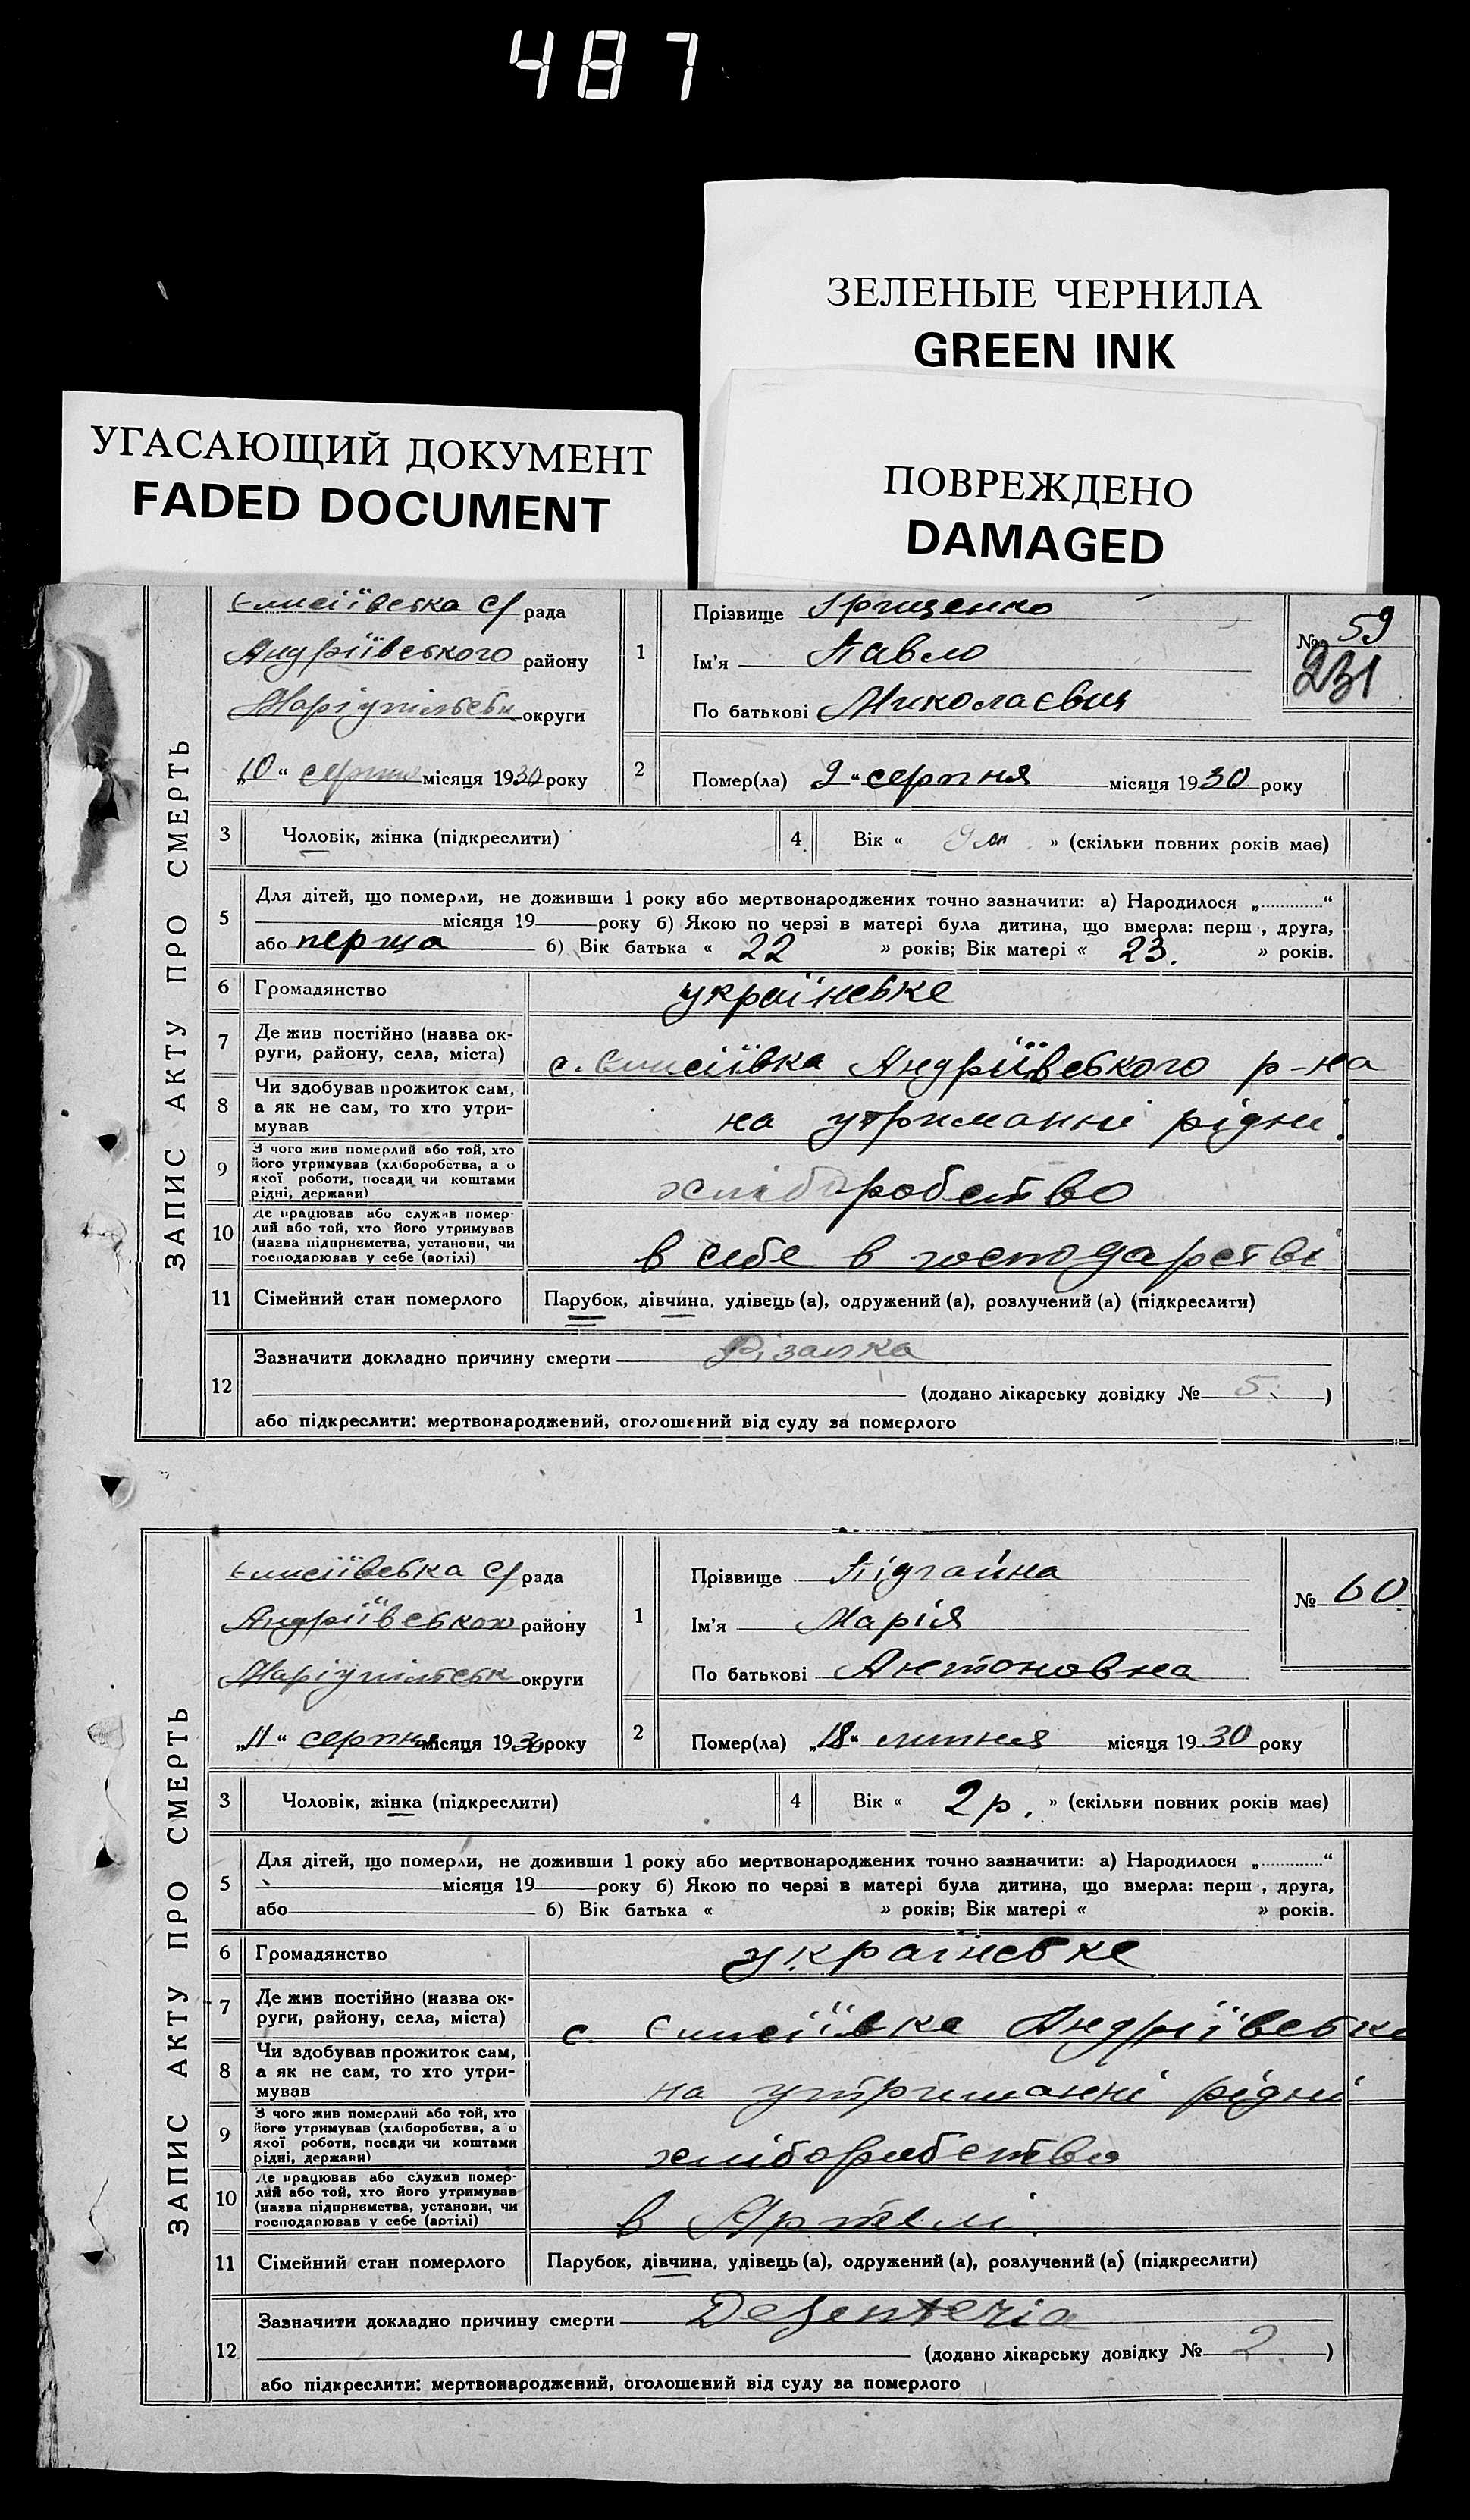 487
ЗЕЛЕНЫЕ ЧЕРНИЛА
GREEN INK
УГАСАЮЩИЙ ДОКУМЕНТ
FADED DOCUMENT
ПОВРЕЖДЕНО
DAMAGED
ЗАПИС АКТУ ПРО СМЕРТЬ
Єлисіївська С/рада
Андріївського району
Маріупільськ округи
„10“ серпня місяця 1930 року
1
Прізвище Грищенко
Ім'я Павло
По батькові Миколаєвич
№ 59
231
2
Помер(ла) 9 “ серпня місяця 1930 року
3
Чоловік, жінка (підкреслити)
4
Вік « 9 м. » (скільки повних років має)
5
Для дітей, що померли, не доживши 1 року або мертвонароджених точно зазначити: а) Народилося „ “
місяця 19 року б) Якою по черзі в матері була дитина, що вмерла: перш , друга,
або перша б) Вік батька « 22 » років; Вік матері « 23. » років.
6
Громадянство українське
7
Де жив постійно (назва ок-
руги, району, села, міста)
с. Єлисіївка Андріївського р-на
8
Чи здобував прожиток сам,
а як не сам, то хто утри-
мував
на утриманні рідні.
9
З чого жив померлий або той, хто
його утримував (хліборобства, а о
якої роботи, посади чи коштами
рідні, держави)
хліборобство
10
Де працював або служив помер-
лий або той, хто його утримував
(назва підприємства, установи, чи
господарював у себе (артілі)
в себе в господарстві
11
Сімейний стан померлого
Парубок, дівчина, удівець (а), одружений (а), розлучений (а) (підкреслити)
12
Зазначити докладно причину смерти Різачка
(додано лікарську довідку № 5. )
або підкреслити: мертвонароджений, оголошений від суду за померлого
ЗАПИС АКТУ ПРО СМЕРТЬ
Єлисіївська С/рада
Андріївського району
Маріупільськ округи
„11“ серпня місяця 1930 року
1
Прізвище Підгайна
Ім'я Марія
По батькові Антоновна
№ 60
2
Помер(ла) „18“ липня місяця 1930 року
3
Чоловік, жінка (підкреслити)
4
Вік « 2 р. » (скільки повних років має)
5
Для дітей, що померли, не доживши 1 року або мертвонароджених точно зазначити: а) Народилося „ “
місяця 19 року б) Якою по черзі в матері була дитина, що вмерла: перш , друга,
або б) Вік батька « » років; Вік матері « » років.
6
Громадянство українське
7
Де жив постійно (назва ок-
руги, району, села, міста)
с. Єлисіївка Андріївсько
8
Чи здобував прожиток сам,
а як не сам, то хто утри-
мував
на утриманні рідні
9
З чого жив померлий або той, хто
його утримував (хліборобства, а о
якої роботи, посади чи коштами
рідні, держави)
хліборобство
10
Де працював або служив помер-
лий або той, хто його утримував
(назва підприємства, установи, чи
господарював у себе (артілі)
в Артелі.
11
Сімейний стан померлого
Парубок, дівчина, удівець (а), одружений (а), розлучений (а) (підкреслити)
12
Зазначити докладно причину смерти Desenteria
(додано лікарську довідку № 2 )
або підкреслити: мертвонароджений, оголошений від суду за померлого